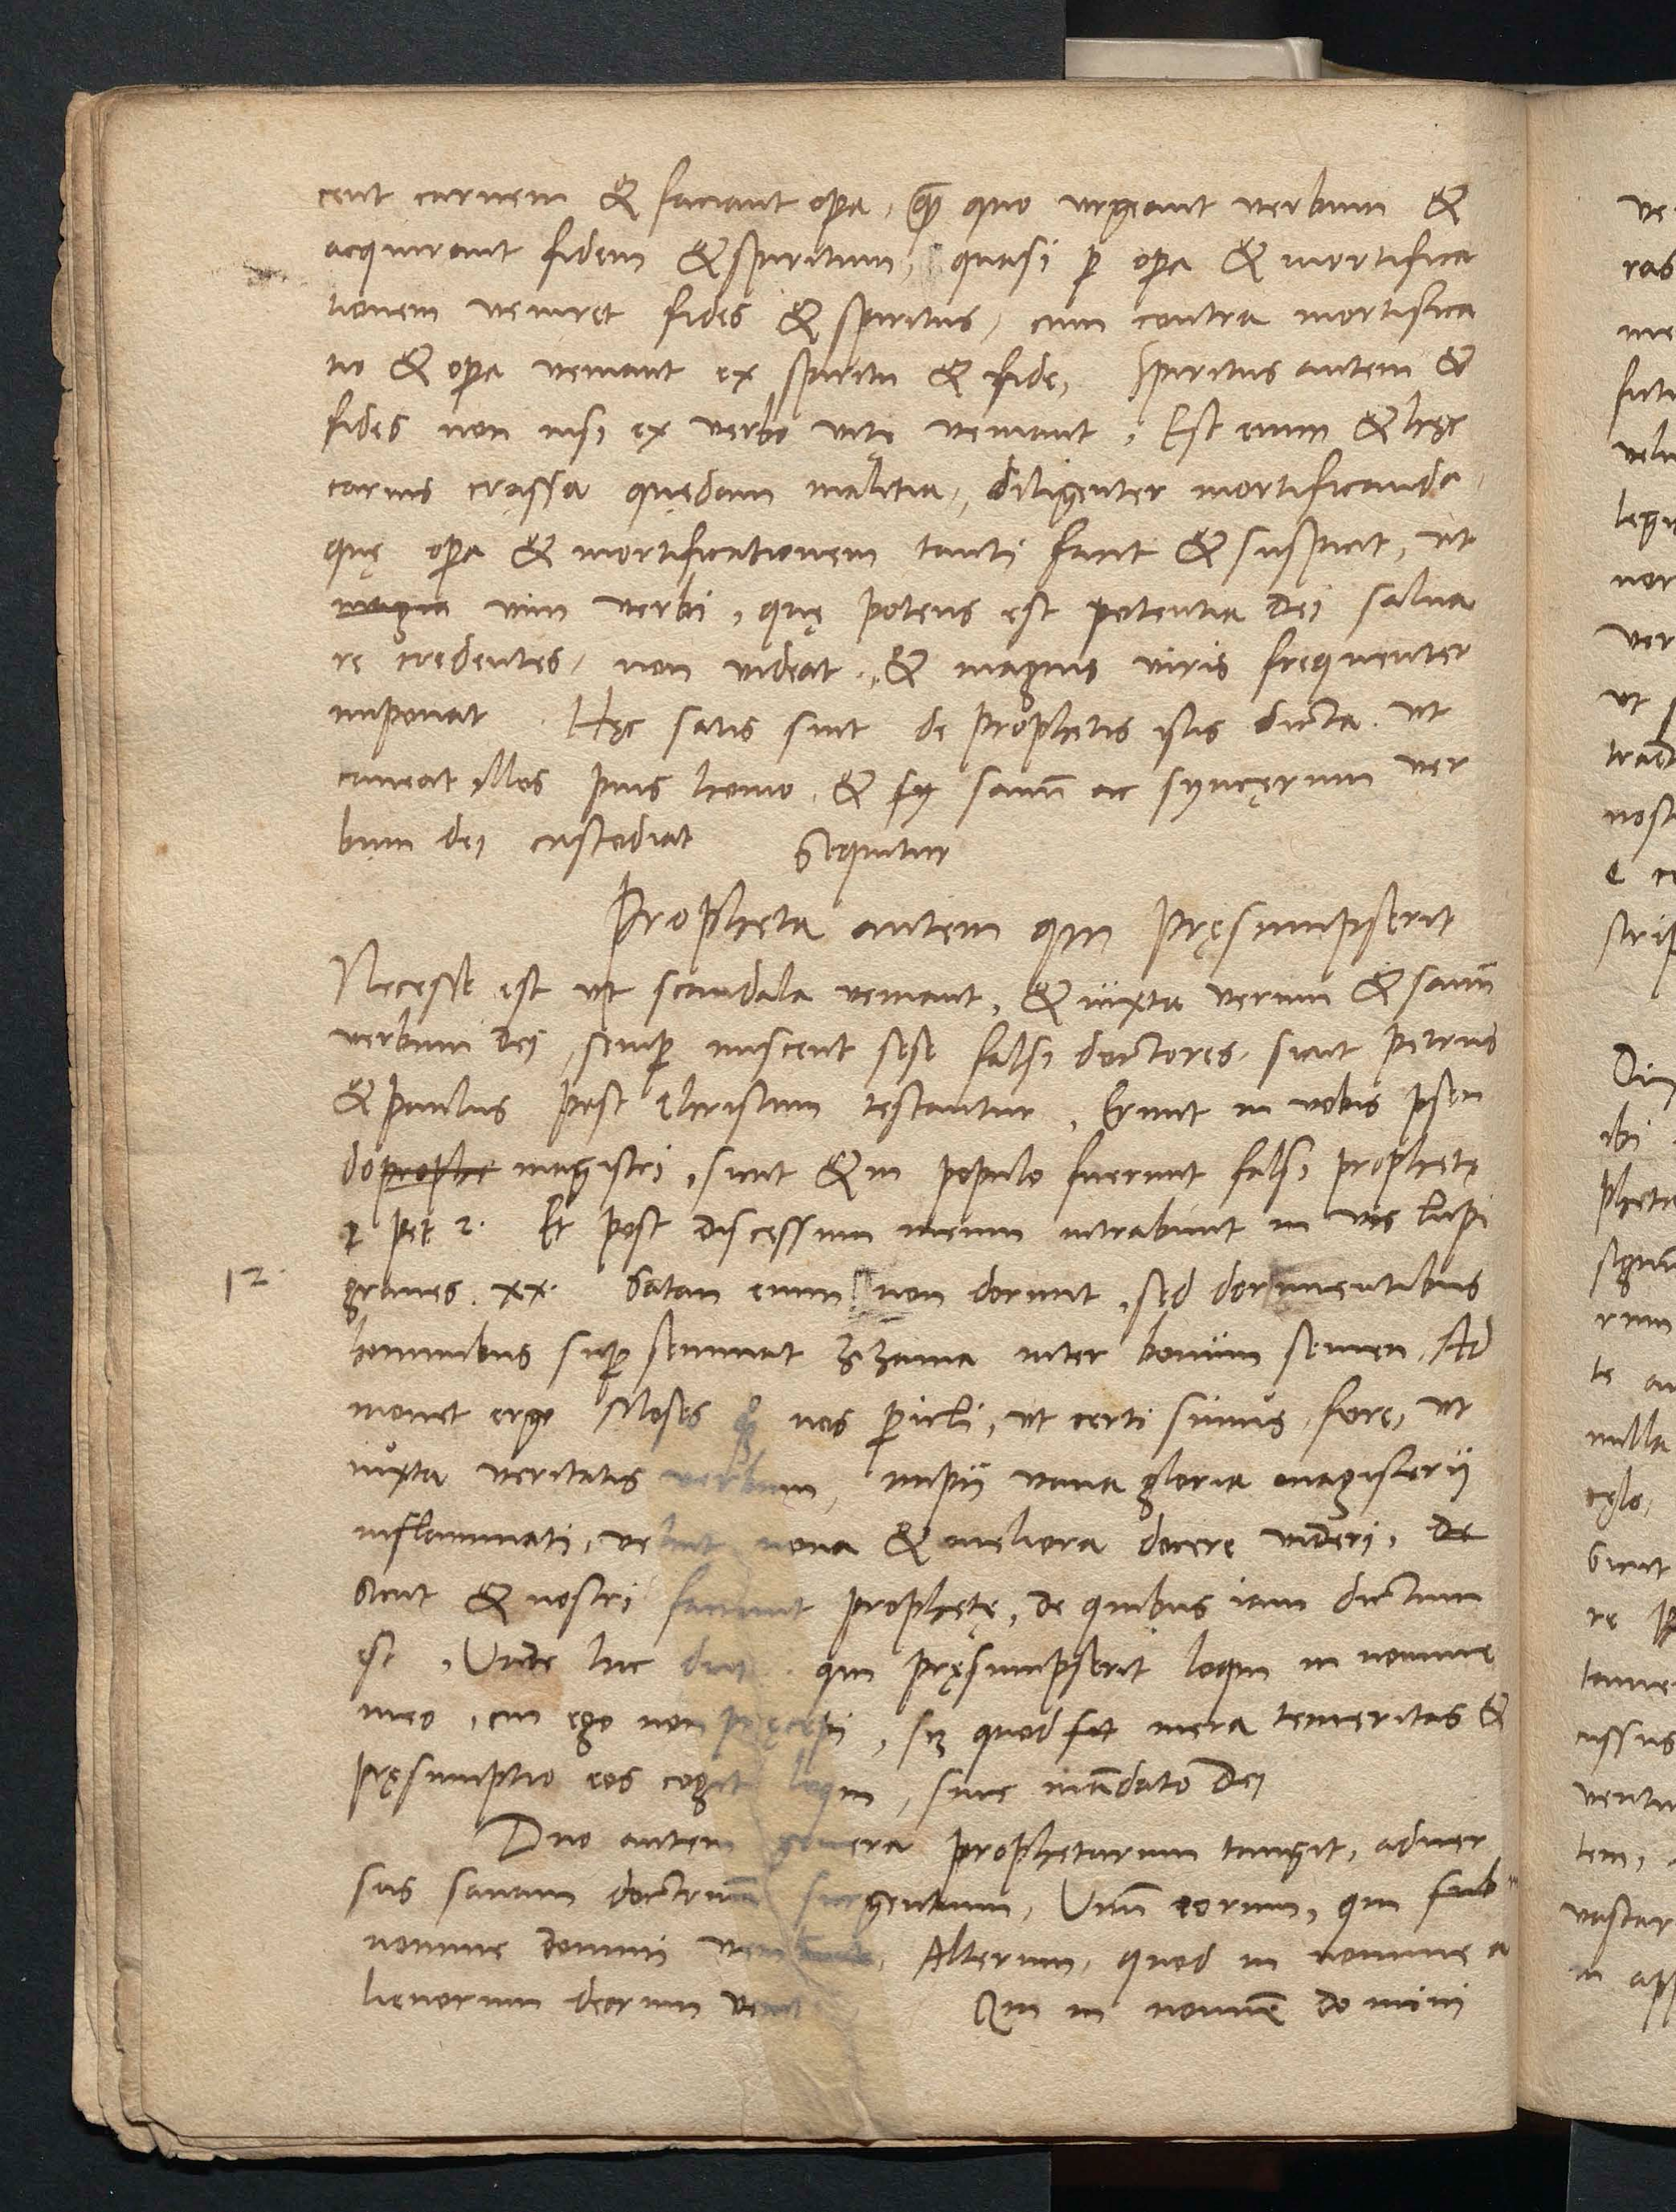 cent carnem & faciant opa, quo urgeant verbum &
acquirant fidem & spiritum, quasi p opa & mortifica
tionem veniret fides & spiritus, cum contra mortifica
tio & opa veniant ex spiritu & fide, Spiritus autem &
fides non nisi ex verbo vitę veniant, Est enim & hęc
carnis crassa quędam malitia, diligenter mortificanda,
quę opa & mortificationem tanti facit & suspicit, ut
magna vim verbi, quę potens est potentia Dei salua
re credentes, non videat, & magnis viris frequenter
imponat. Hęc satis sint de prophetis istis dicta. ut
caueat illos pius homo, & sy sanū ac syncęrum ver
bum dei custodiat Sequitur
Propheta autem qui pręsumpserit
Necesse est ut scandala veniant, & iuxta verum & sanū
verbum Dei, semp misceut sese falsi doctores, sicut petrus
& paulus post Christum testantur, Erunt in vobis pseu
doprophe magistri, sicut & in populo fuerunt falsi prophetę
2 pet 2. Et post discessum meum intrabunt in vos lupi
12.
graues. xx. Satan enim non dormit, sed dormientibus
hominibus sup seminat zizania inter bonum semen, Ad
monet ergo Moses nos picli, ut certi simus, fore, ut
iuxta veritatis verbum, impii vana gloria magisterii
inflammati, velint noua & meliora docere videri, de
sicut & nostri faciunt prophetę, de quibus iam dictum
est, Unde hic dicit, qui pręsumpserit loqui in nomine
meo, cui ego non pręcepi, sz quod fit mera temeritas &
pręsumptio eos cogit loqui, sine mādato Dei
Duo autem genera prophetarum tangit, aduer
sus sanam doctrinā surgentium, Unū eorum, qui sub
nomine domini, Alterum, quod in nomine a
lienorum deorum venit Qui in nomīe domini